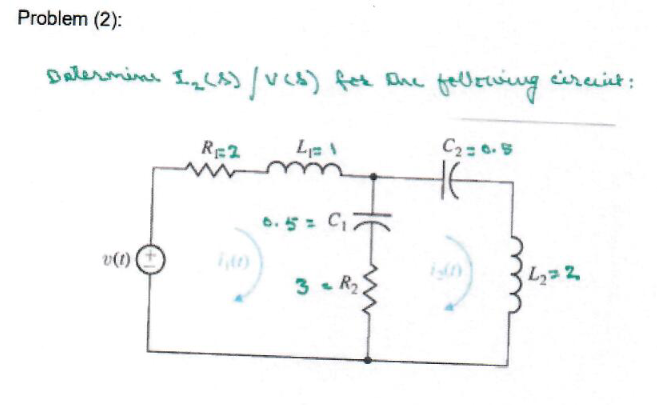 Problem (2):
Determine I₂(s) / V(s) for the following circuit:
R₁=2 L₁=1 C₂=0.5
0.5 = C₁
v(t) + − i₁(t) i₂(t) L₂=2
3 = R₂